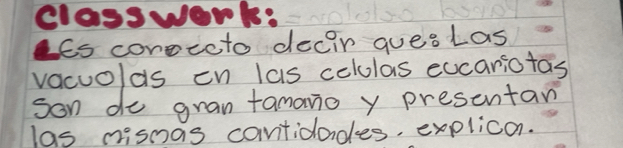 Classwork:
¿Es conoccto decir que: Las
vacuolas en las celulas eucariotas
son de gran tamaño y presentan
las mismas cantidades. explica.